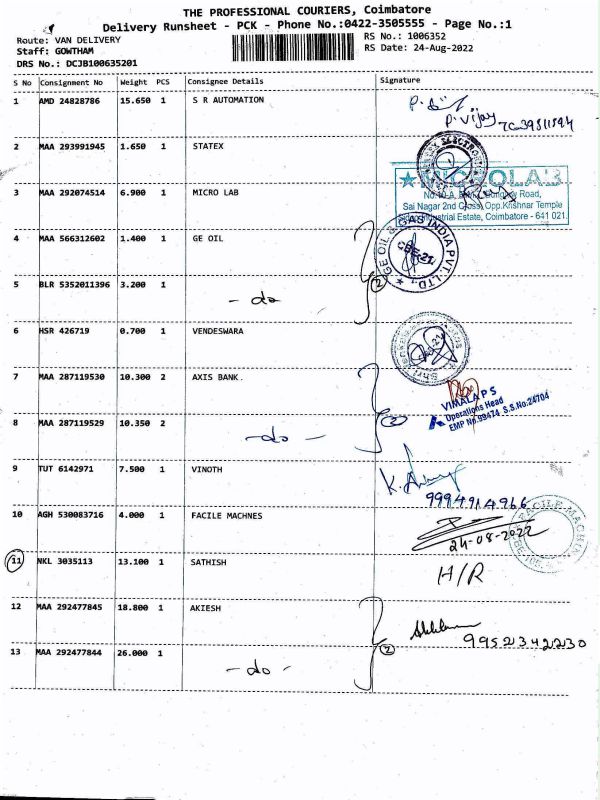 THE PROFESSIONAL COURIERS, Coimbatore
Delivery Runsheet - PCK - Phone No.:0422-3505555 - Page No.:1
Route: VAN DELIVERY
RS No.: 1006352
Staff: GOWTHAM
RS Date: 24-Aug-2022
DRS No.: DCJB100635201
S No Consignment No Weight PCS Consignee Details Signature
1 AMD 24828786 15.650 1 S R AUTOMATION
P. Vijay
2 MAA 293991945 1.650 1 STATEX
3 MAA 292074514 6.900 1 MICRO LAB
Road,
Sai Nagar 2nd Cross, Opp.Krishnar Temple
Industrial Estate, Coimbatore - 641 021.
4 MAA 566312602 1.400 1 GE OIL
GE OIL & GAS INDIA PVT. LTD.
5 BLR 5352011396 3.200 1 - do - 2
6 HSR 426719 0.700 1 VENDESWARA
7 MAA 287119530 10.300 2 AXIS BANK.
VIMALA P S
Operations Head
EMP No.99474 S.S.No:24704
8 MAA 287119529 10.350 2 - do - 2
9 TUT 6142971 7.500 1 VINOTH
9994914966
10 AGH 530083716 4.000 1 FACILE MACHNES
24-08-2022
11 NKL 3035113 13.100 1 SATHISH H/R
12 MAA 292477845 18.800 1 AKIESH
9952342230
13 MAA 292477844 26.000 1 - do - 2